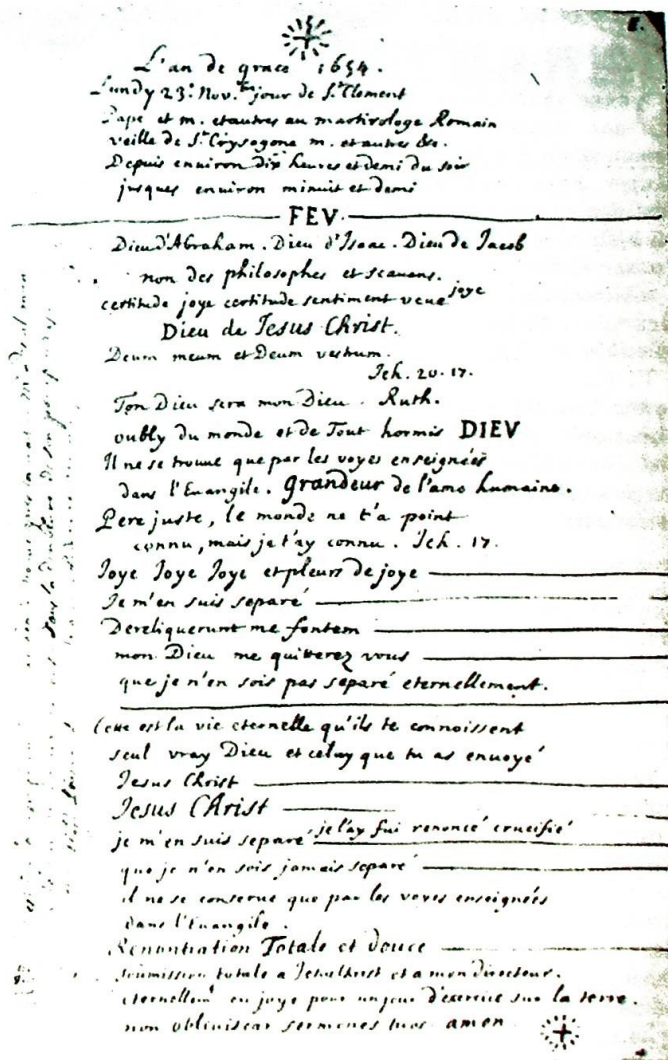 L'an de grace 1654.
Lundy 23e. Nov.bre jour de St. Clement
Pape et m. et autres au martirologe Romain
veille de St. Crysogone m. et autres &c.
Depuis environ dix heures et demi du soir
jusques environ minuit et demi
FEV.
Dieu d'Abraham. Dieu d'Isaac. Dieu de Jacob
non des philosophes et scavans.
certitude joye certitude sentiment veue joye
Dieu de Jesus Christ.
Deum meum et Deum vestrum.
Jeh. 20. 17.
Ton Dieu sera mon Dieu. Ruth.
oubly du monde et de Tout hormis DIEV
Il ne se trouve que par les voyes enseignées
dans l'Euangile. Grandeur de l'ame humaine.
Pere juste, le monde ne t'a point
connu, mais je t'ay connu. Jeh. 17.
Joye Joye Joye et pleurs de joye
Je m'en suis separé
Dereliquerunt me fontem
mon Dieu me quitterez vous
que je n'en sois pas separé eternellement.
Cette est la vie eternelle qu'ils te connoissent
seul vray Dieu et celuy que tu as envoyé
Jesus Christ
Jesus Christ
je m'en suis separé je l'ay fui renoncé crucifié
que je n'en sois jamais separé
il ne se conserve que par les voyes enseignées
dans l'Euangile.
Renontiation Totale et douce
soumission totale a Jesus Christ et a mon directeur.
eternellemt. en joye pour un jour d'exercice sur la terre.
non obliviscar sermones tuos. amen